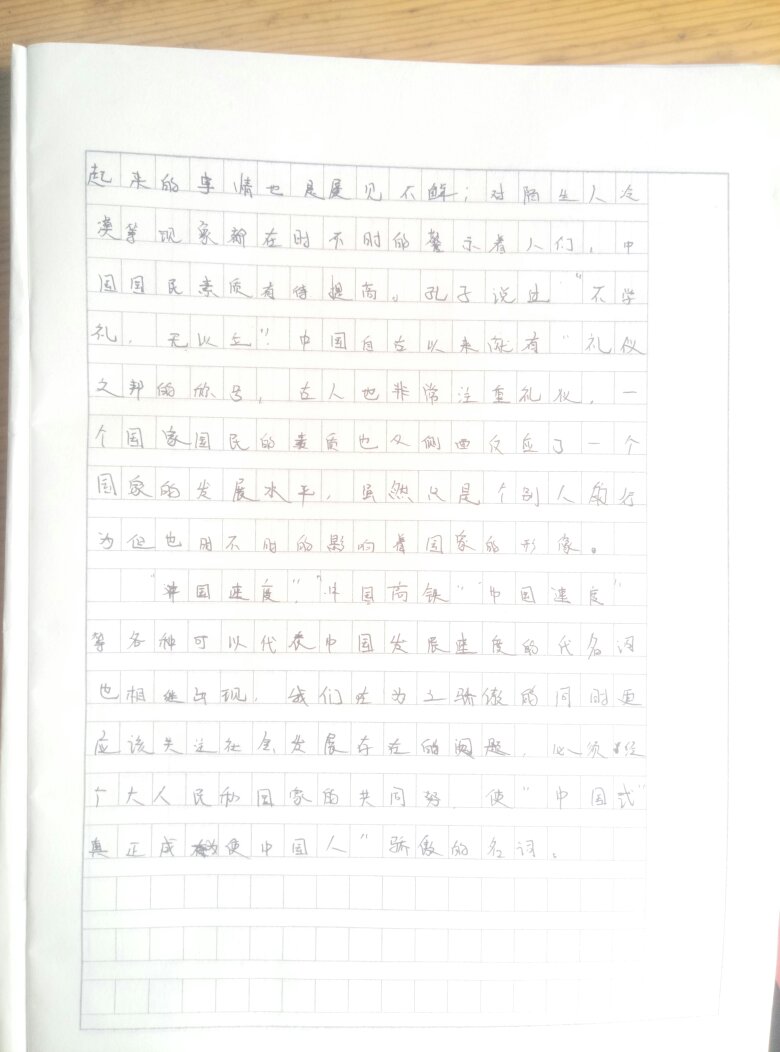 起来的事情也是屡见不鲜；对陌生人冷
漠等现象都在时不时的警示着人们，中
国国民素质有待提高。孔子说过“不学
礼，无以立”！中国自古以来就有“礼仪
之邦的称号，古人也非常注重礼仪，一
个国家国民的素质也从侧面反应了一个
国家的发展水平，虽然仅是个别人的行
为但也时不时的影响着国家的形像。
“中国速度”“中国高铁”“中国速度”
等各种可以代表中国发展速度的代名词
也相继出现，我们在为之骄傲的同时更
应该关注社会发展存在的问题，必须
个大人民和国家的共同努，使“中国式”
真正成为使中国人”骄傲的名词。